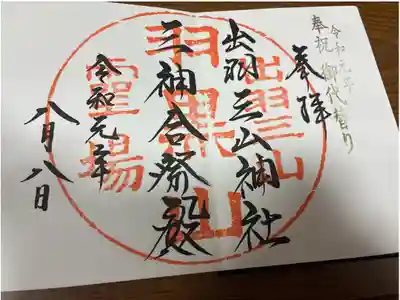 奉祝 令和元年 御代替り
奉拝
出羽三山神社
三神合祭殿
令和元年
八月八日
出羽三山
羽黒山
霊場